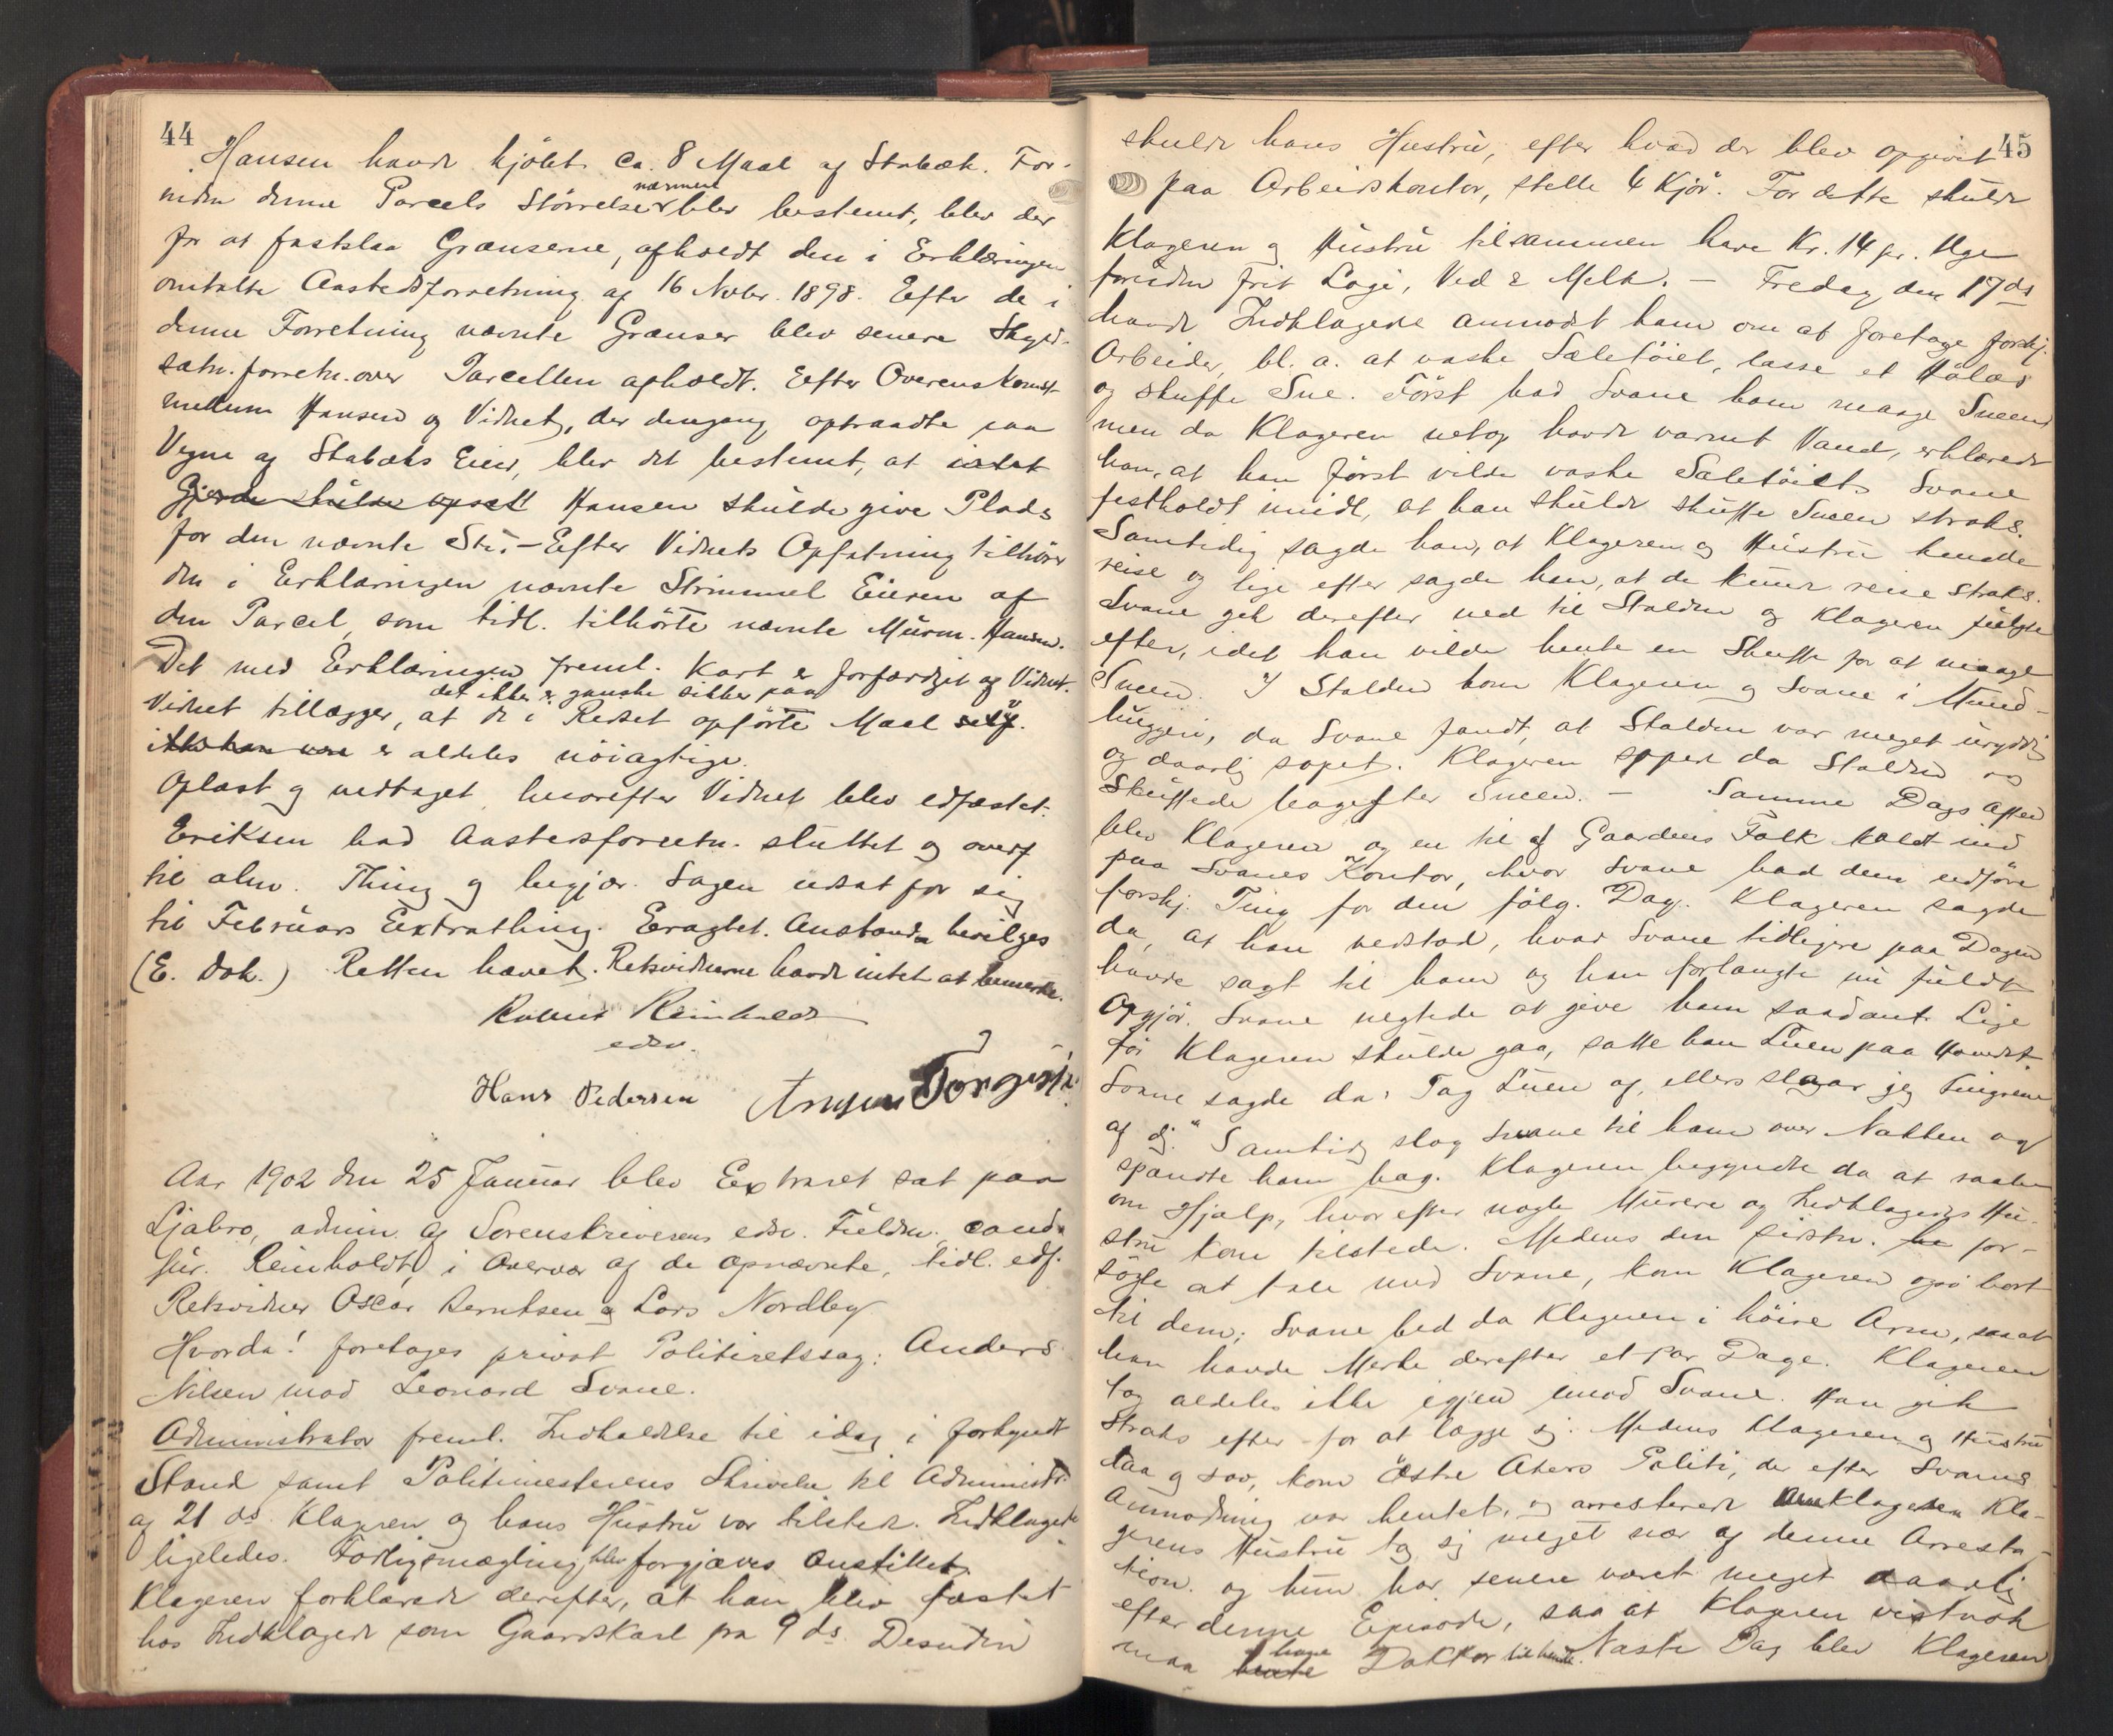 44
Hansen havde kjöbt ca. 8 Maal af Stabæk. For-
inden denne Parcels Störrelse nærmere blev bestemt, blev der
for at fastslaa Grænserne, afholdt den i Erklæringen
omtalte Aastedsforretning af 16 Novbr. 1898. Efter de i
denne Forretning nævnte Grænser blev senere Skyld-
sætn. forretn. over Parcellen afholdt. Efter Overenskomst
mellem Hansen og Vidnet, der dengang optraadte paa
Vegne af Stabæks Eier, blev det bestemt, at intet
Gjerde skulde opsatt Hansen skulde give Plads
for den nævnte Sti. - Efter Vidnets Opfatning tilhörer
den i Erklæringen nævnte Strimmel Eieren af
den Parcel, som tidl. tilhörte nævnte Murm. Hansen.
Det med Erklæringen freml. Kart er forfærdiget af Vidnet.
Vidnet tillægger, at det ikke er ganske sikker paa de i Ridset opförte Maal
er aldeles nöiagtige.
Oplæst og vedtaget, hvorefter Vidnet blev edfæstet.
Eriksen bad Aastedsforretn. sluttet og overf.
til alm. Thing og begjær. Sagen udsat for sig
til Februars Extrathing. Eragtet. Anstand bevilges
(E. dok.) Retten hævet. Retsvidnerne havde intet at bemerke.
Reinholdt
edsv.
Hans Pedersen
Aar 1902 den 25 Januar blev Extraret sat paa
Ljabro, admin. af Sorenskriverens edsv. Fuldm. cand.
jur. Reinholdt, i Overvær af de opnævnte, tidl. edf.
Retsvidner Oscar Berntsen og Lars Nordby
Hvorda! foretages privat Politiretssag: Anders
Nilsen mod Leonard Svane.
Administrator freml. Indkaldelse til idag i forkyndt
Stand samt Politimesterens Skrivelse til Administr.
af 21 ds. Klageren og hans Hustru var tilstede. Indklagede
ligeledes. Forligsmægling blev forgjæves anstillet.
Klageren forklarede derefter, at han blev fæstet
hos Indklagede som Gaardskarl fra 9 ds. Desuden
45
skulde hans Hustru, efter hvad der blev opgivet
paa Arbeidskontor, stelle 4 Kjör. For dette skulde
Klageren og Hustru tilsammen have Kr. 14 pr. Uge
foruden frit Logi, Ved & Melk. - Fredag den 17 ds
havde Indklagede anmodet ham om at foretage forskj.
Arbeider, bl. a. at vaske Sæletöiet, lasse et Hölas
og skuffe Sne. Först bad Svane ham maage Sneen
men da Klageren netop havde varmt Vand, erklærede
han, at han först vilde vaske Sæletöiet. Svane
fastholdt imidl., at han skulde skuffe Sneen straks.
Samtidig sagde han, at Klageren og Hustru kunde
reise og lige efter sagde han, at de kunde reise straks.
Svane gik derefter ned til Stalden og Klageren fulgte
efter, idet han vilde hente en Skuffe for at maage
Sneen. I Stalden kom Klageren og Svane i Mund-
huggeri, da Svane fandt, at Stalden var meget uryddig
og daarlig sopet. Klageren sopede da Stalden og
skuffede bagefter Sneen. - Samme Dags Aften
blev Klageren og en til af Gaardens Folk kaldt ind
paa Svanes Kontor, hvor Svane bad dem udföre
forskj. Ting for den fölg. Dag. Klageren sagde
da, at han vedstod, hvad Svane tidligere paa Dagen
havde sagt til ham og han forlangte nu fuldt
Opgjör. Svane negtede at give ham saadant. Lige
för Klageren skulde gaa, satte han Luen paa Hovedet
Svane sagde da: Tag Luen af, ellers slaar jeg Fingrene
af dig." Samtidig slog Svane til ham over Nakken og
spændte ham bag. Klageren begyndte da at raabe
om Hjælp, hvorefter nogle Murere og Indklagedes Hu-
stru kom tilstede. Medens den sidstn. for-
sögte at tale med Svane, kom Klageren også bort
til dem; Svane bed da Klageren i höire Arm, saa at
han havde Merke derefter et par Dage. Klageren
tog aldeles ikke igjen imod Svane. Han gik
straks efter for at lægge sig. Medens Klageren og Hustru
laa og sov, kom Östre Akers Politi, der efter Svanes
Anmodning var hentet, og arresterede Klageren. Kla-
gerens Hustru tog sig meget nær af denne Arresta-
tion. og hun har senere været meget daarlig
efter denne Episode, saa at Klageren vistnok
maa have Doktor til hende. Næste Dag blev Klageren